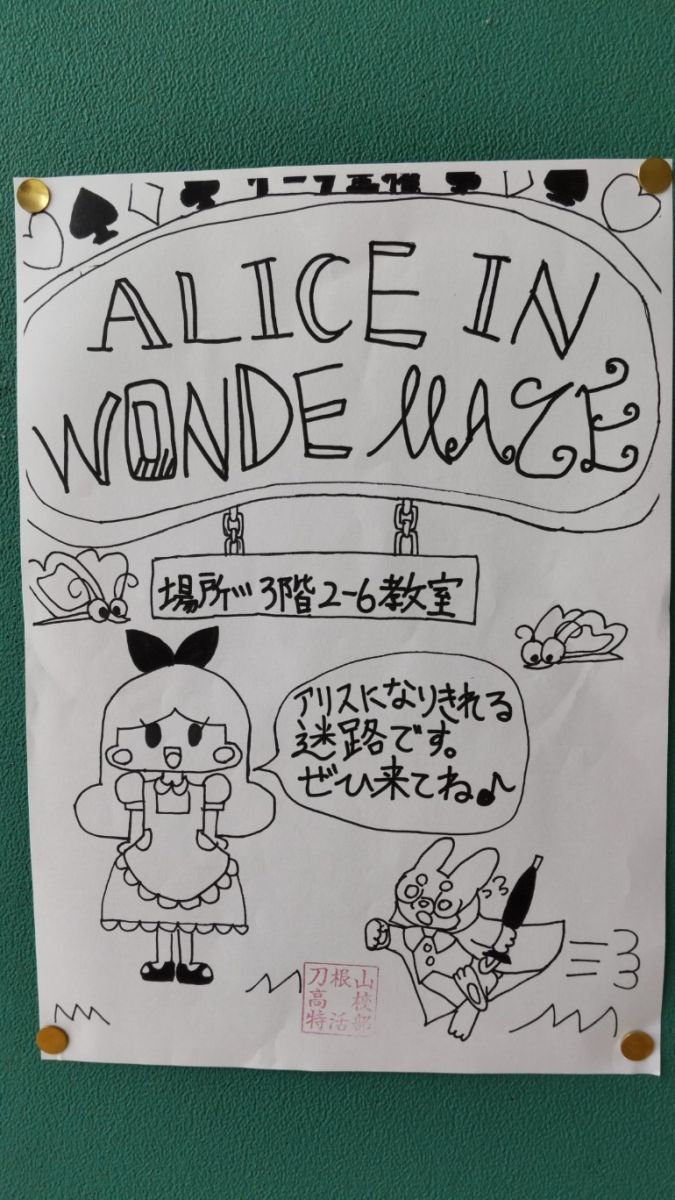 ALICE IN
WONDE MAZE
場所…3階2-6教室
アリスになりきれる
迷路です。
ぜひ来てね♪
刀根山
高校
特活部